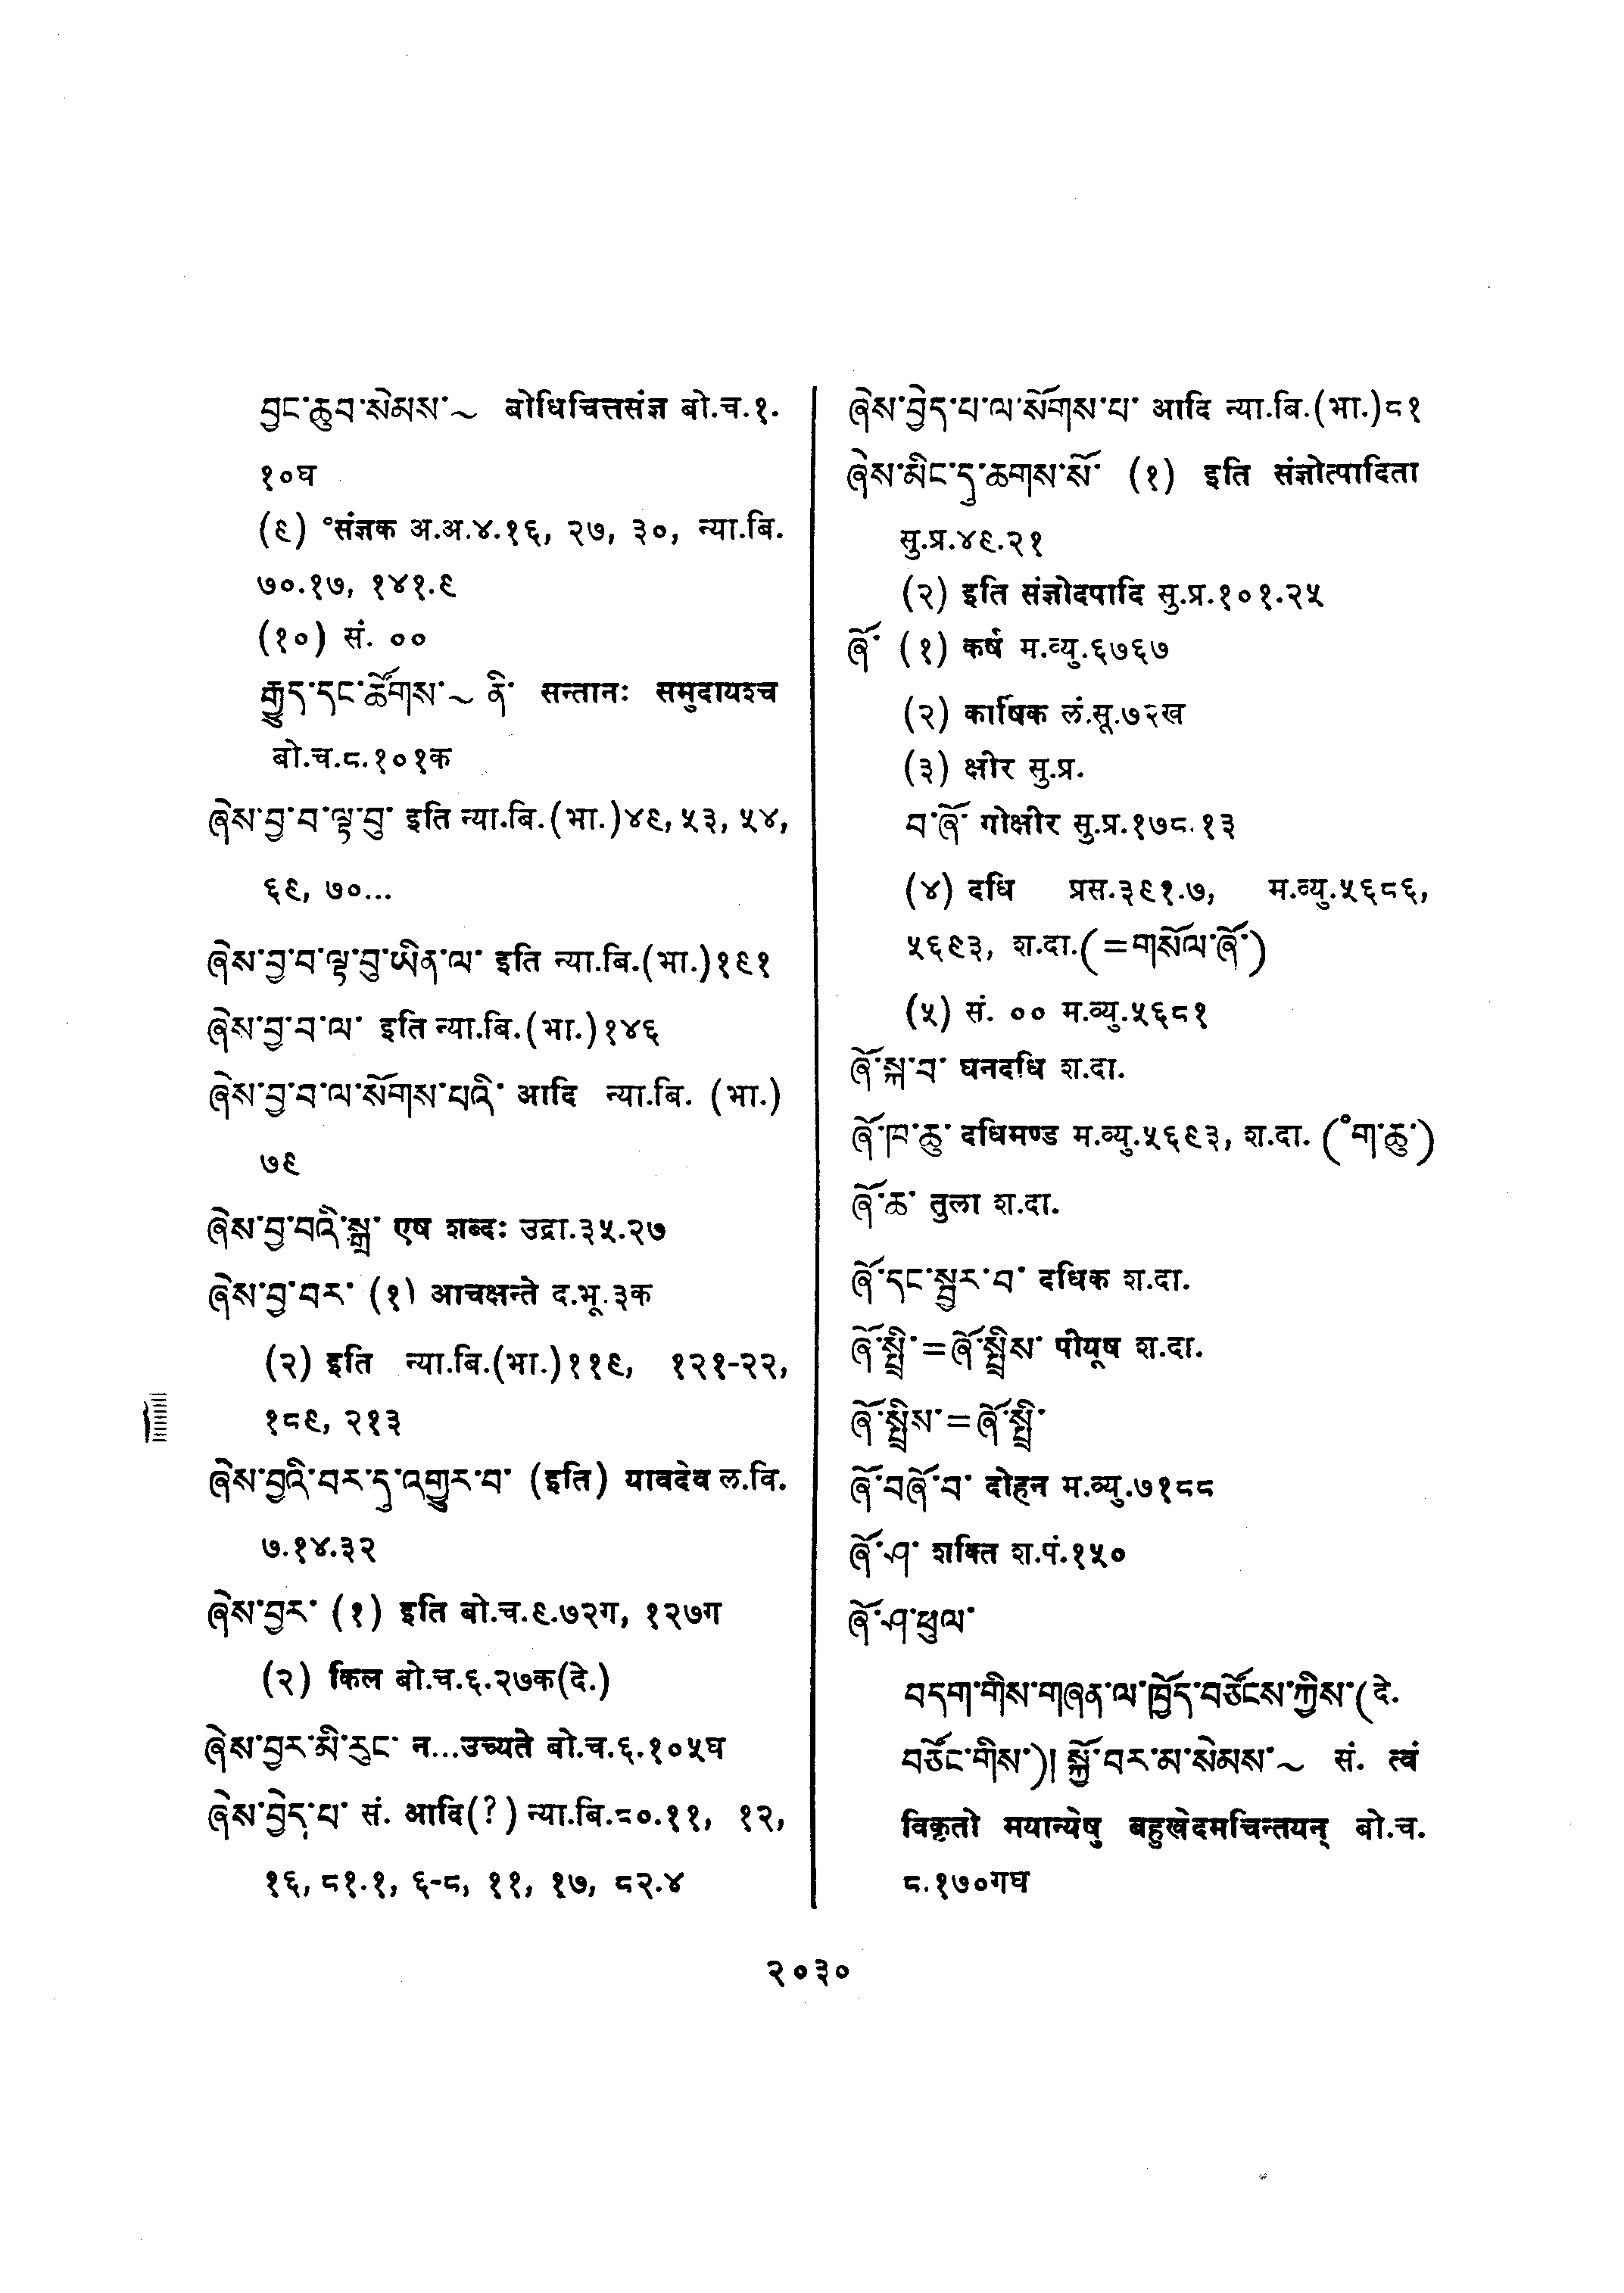 བྱང་ཆུབ་སེམས་~ बोधिचित्तसंज्ञ बो.च.१.
१०घ
(९) °संज्ञक अ.अ.४.१६, २७, ३०, न्या.बि.
७०.१७, १४१.९
(१०) सं. ००
རྒྱུད་དང་ཚོགས་~ ནི་ सन्तानः समुदायश्च
बो.च.८.१०१क
ཞེས་བྱ་བ་ལྟ་བུ་ इति न्या.बि.(भा.)४९, ५३, ५४,
६९, ७०...
ཞེས་བྱ་བ་ལྟ་བུ་ཡིན་ལ་ इति न्या.बि.(भा.)१९१
ཞེས་བྱ་བ་ལ་ इति न्या.बि.(भा.)१४६
ཞེས་བྱ་བ་ལ་སོགས་པའི་ आदि न्या.बि. (भा.)
७९
ཞེས་བྱ་བའི་སྒྲ་ एष शब्दः उद्रा.३५.२७
ཞེས་བྱ་བར་ (१) आचक्षन्ते द.भू.३क
(२) इति न्या.बि.(भा.)११९, १२१-२२,
१८९, २१३
ཞེས་བྱའི་བར་དུ་འགྱུར་བ་ (इति) यावदेव ल.वि.
७.१४.३२
ཞེས་བྱར་ (१) इति बो.च.९.७२ग, १२७ग
(२) किल बो.च.६.२७क(दे.)
ཞེས་བྱར་མི་རུང་ न...उच्यते बो.च.६.१०५घ
ཞེས་བྱེད་པ་ सं. आदि(?) न्या.बि.८०.११, १२,
१६, ८१.१, ६-८, ११, १७, ८२.४
ཞེས་བྱེད་པ་ལ་སོགས་པ་ आदि न्या.बि.(भा.)८१
ཞེས་མིང་དུ་ཆགས་སོ་ (१) इति संज्ञोत्पादिता
सु.प्र.४९.२१
(२) इति संज्ञोदपादि सु.प्र.१०१.२५
ཞོ་ (१) कर्ष म.व्यु.६७६७
(२) कार्षिक लं.सू.७२ख
(३) क्षीर सु.प्र.
བ་ཞོ་ गोक्षीर सु.प्र.१७८.१३
(४) दधि प्रस.३९१.७, म.व्यु.५६८६,
५६९३, श.दा.(=གསོལ་ཞོ་)
(५) सं. ०० म.व्यु.५६८१
ཞོ་སྐ་བ་ घनदधि श.दा.
ཞོ་ཁ་ཆུ་ दधिमण्ड म.व्यु.५६९३, श.दा. (°ག་ཆུ་)
ཞོ་ཆ་ तुला श.दा.
ཞོ་དང་སྦྱར་བ་ दधिक श.दा.
ཞོ་སྤྲི་=ཞོ་སྤྲིས་ पीयूष श.दा.
ཞོ་སྤྲིས་=ཞོ་སྤྲི་
ཞོ་བཞོ་བ་ दोहन म.व्यु.७१८८
ཞོ་ཤ་ शक्ति श.पं.१५०
ཞོ་ཤ་ཕུལ་
བདག་གིས་གཞན་ལ་ཁྱོད་བཙོངས་ཀྱིས་(दे.
བཙོང་གིས་)། སྐྱོ་བར་མ་སེམས་~ सं. त्वं
विकृतो मयान्येषु बहुखेदमचिन्तयन् बो.च.
८.१७०गघ
२०३०